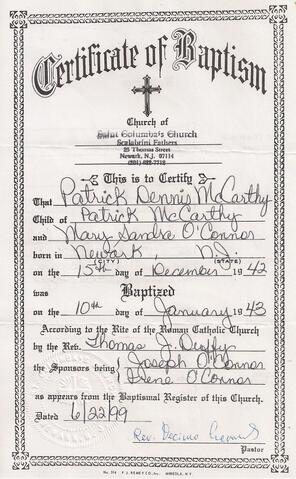 Certificate of Baptism
Church of
Saint Columba's Church
Scalabrini Fathers
25 Thomas Street
Newark, N.J. 07114
This is to Certify
That Patrick Dennis McCarthy
Child of Patrick McCarthy
and Mary Sandra O'Connor
born in Newark, N.J.
(CITY) (STATE)
on the 15th day of December 1942
was
Baptized
on the 10th day of January 1943
According to the Rite of the Roman Catholic Church
by the Rev. Thomas J.
the Sponsors being Joseph O'Connor
Irene O'Connor
as appears from the Baptismal Register of this Church.
Dated 6/22/99
Rev.
Pastor